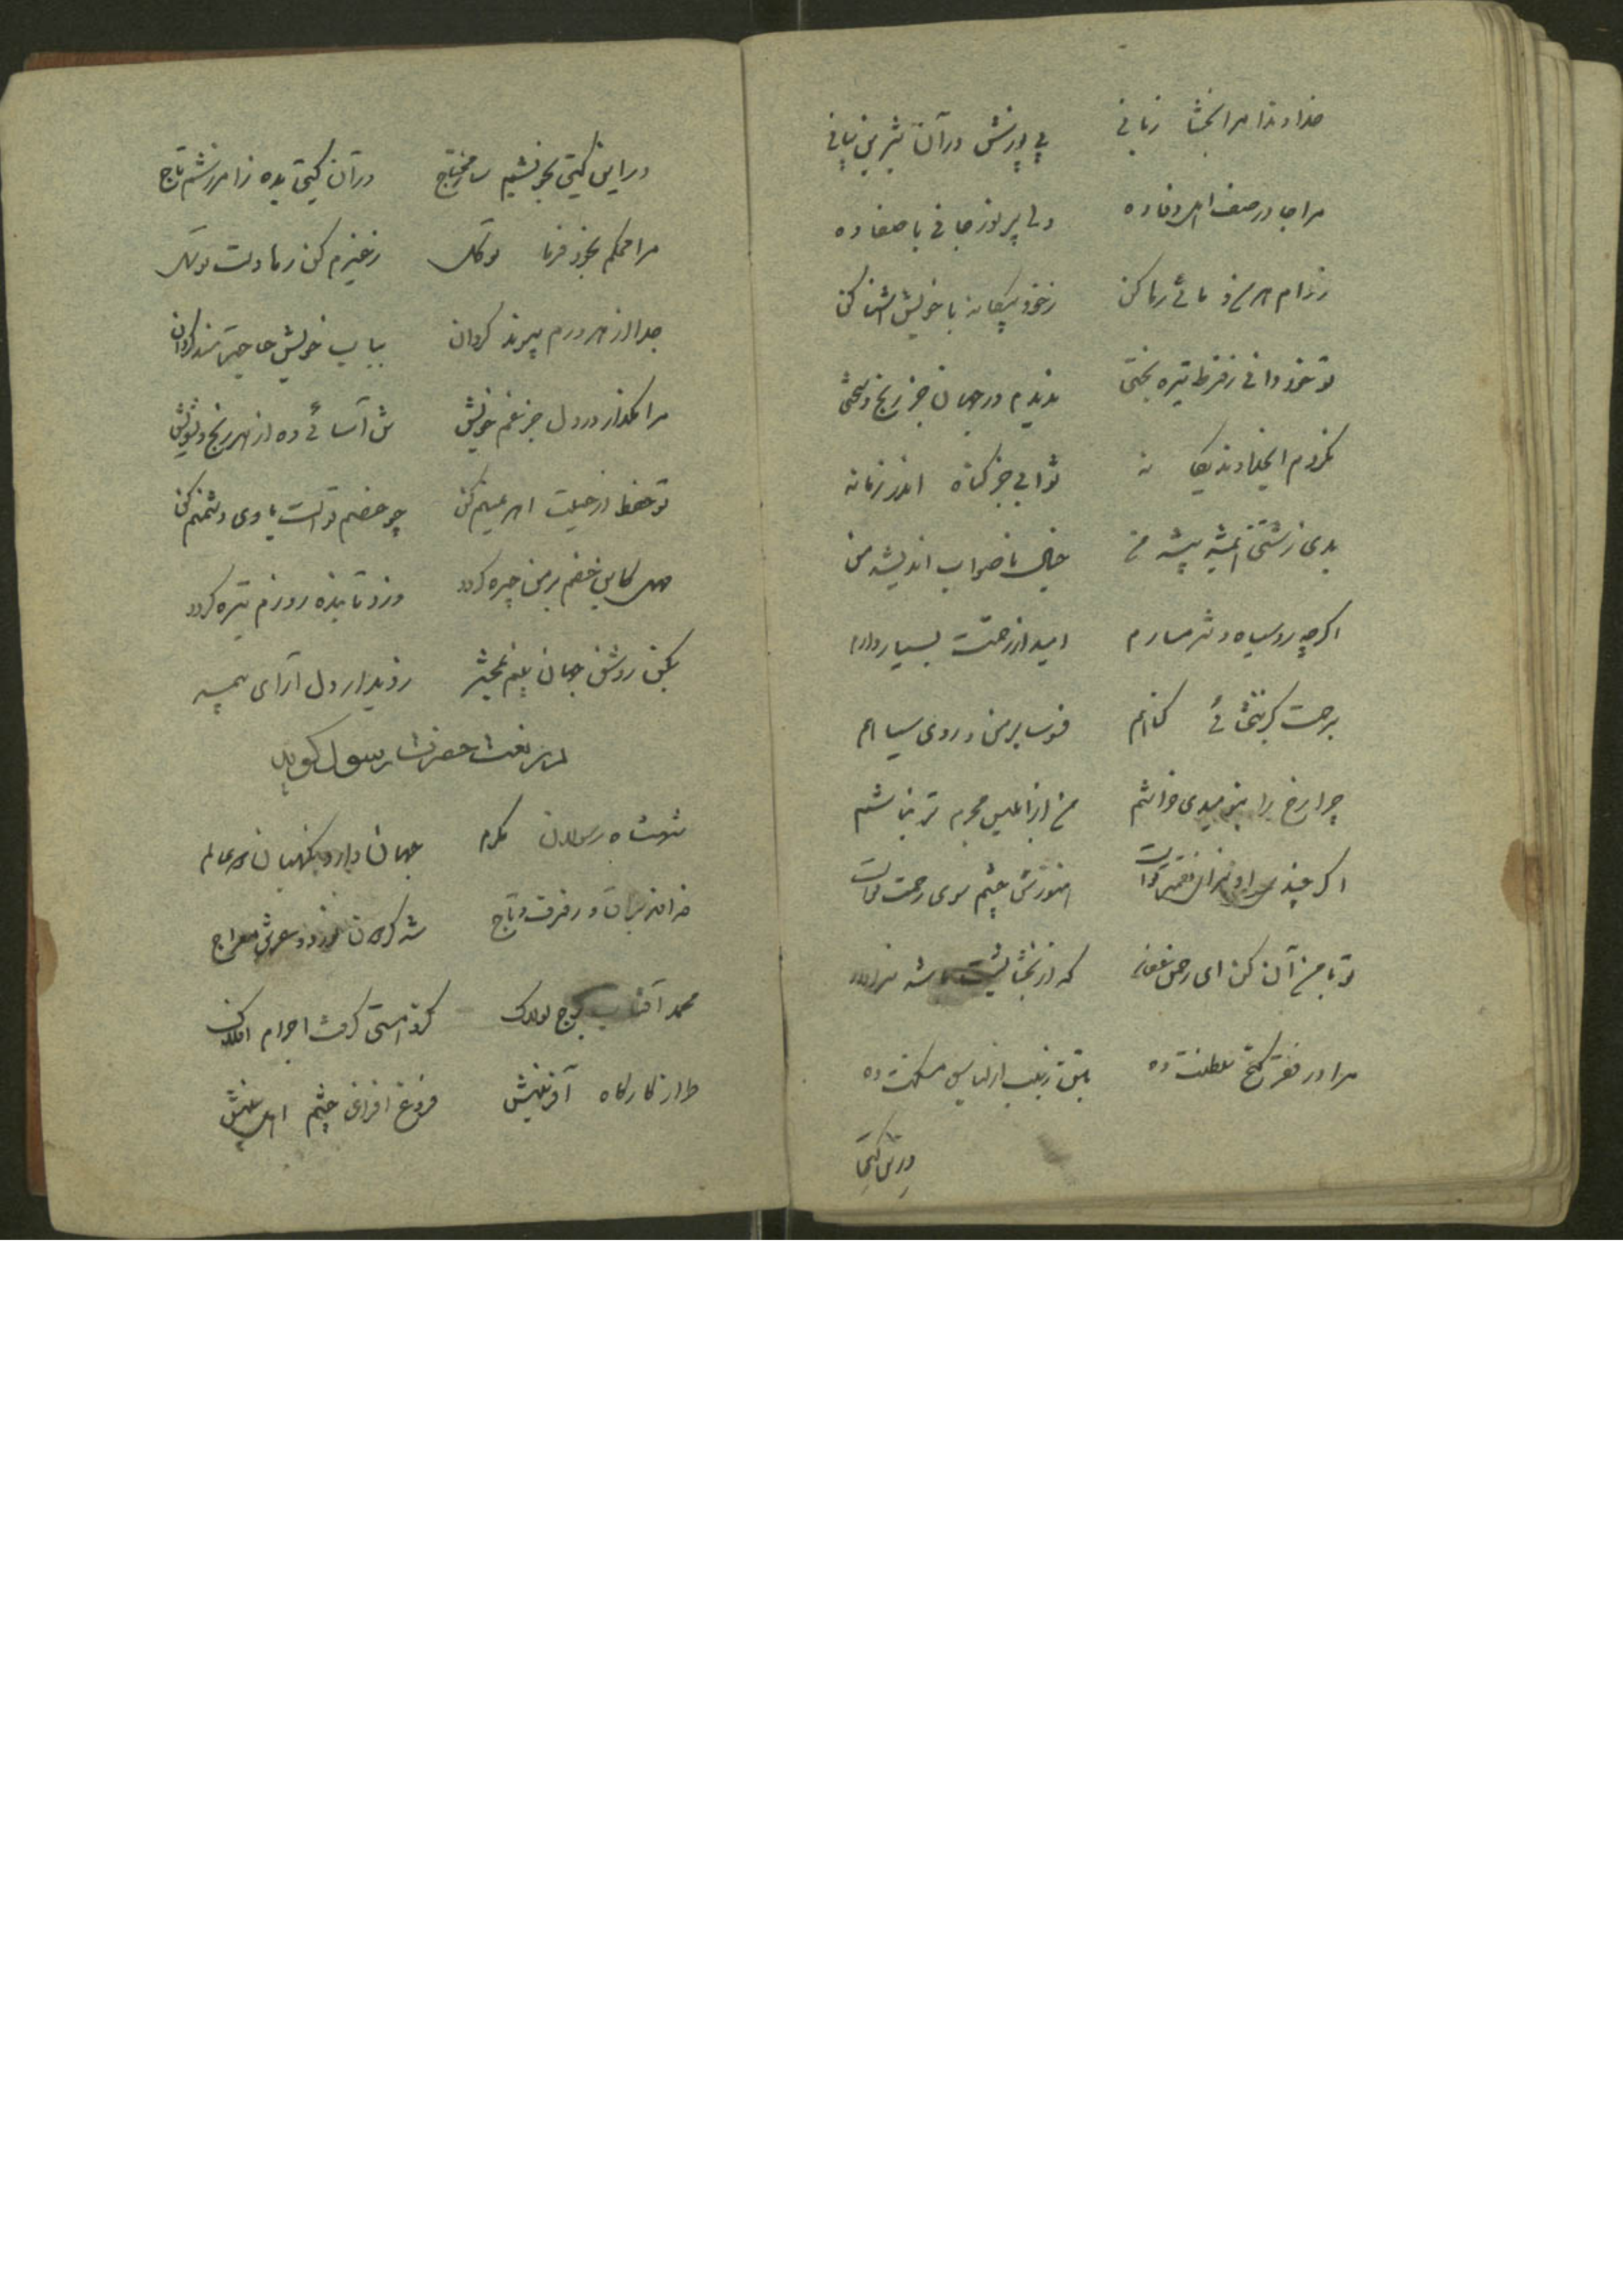 خداوندا مرا بخشا زبانی پی پوزش در آن شیرین بیانی
مرا جا در صف اهل وفا ده دلی پر نور جانی با صفا ده
ز دام هر من و مائی رها کن ز خود بیگانه با خویش آشنا کن
تو خود دانی ز فرط تیره بختی ندیدم در جهان جز رنج و سختی
نکردم ای خداوند یگانه ثوابی جز گناه اندر زمانه
بدی زشتی همیشه پیشه من خیال ناصواب اندیشه من
اگرچه روسیاه و شرمسارم امید از رحمتت بسیار دارم
برحمت گر نبخشائی گناهم فسوسا بر من و روی سیاهم
چرا رخ را بنومیدی خراشم من از ابلیس مجرم تر نباشم
اگر چند سزاوار نقمت تو است هنوزش چشم سوی رحمت تو است
تو با من آن کن ای رحمن غفار که از بخشایشت باشد سزاوار
مرا در فقر گنج سلطنت ده بتن زیب از لباس مسکنت ده
در این گیتی
در این گیتی بخویشم ساز محتاج در آن گیتی بده ز آمرزشم تاج
مرا محکم بخود فرما توکل ز غیرم کن رها دست توسل
جدا از هر درم پیوند گردان بباب خویش حاجتمند گردان
مرا مگذار در دل جز غم خویش تن آسائی ده از هر رنج و تشویش
تو حفظ از حیلت اهریمنم کن چو خصم تو است یاری دشمنم کن
مهل کاین خصم بر من چیره گردد وزو تابنده روزم تیره گردد
بکن روشن جهان بینم بمحشر ز دیدار دل آرای پیمبر
در نعت حضرت رسول گوید
شهنشاه رسولان مکرم جهاندار و نگهبان دو عالم
خدا براق و رفرف و تاج شه کرسی عرش معراج
محمد آفتاب برج لولاک کزو هستی گرفت اجرام افلاک
طراز کارگاه آفرینش فروغ افزای چشم اهل بینش